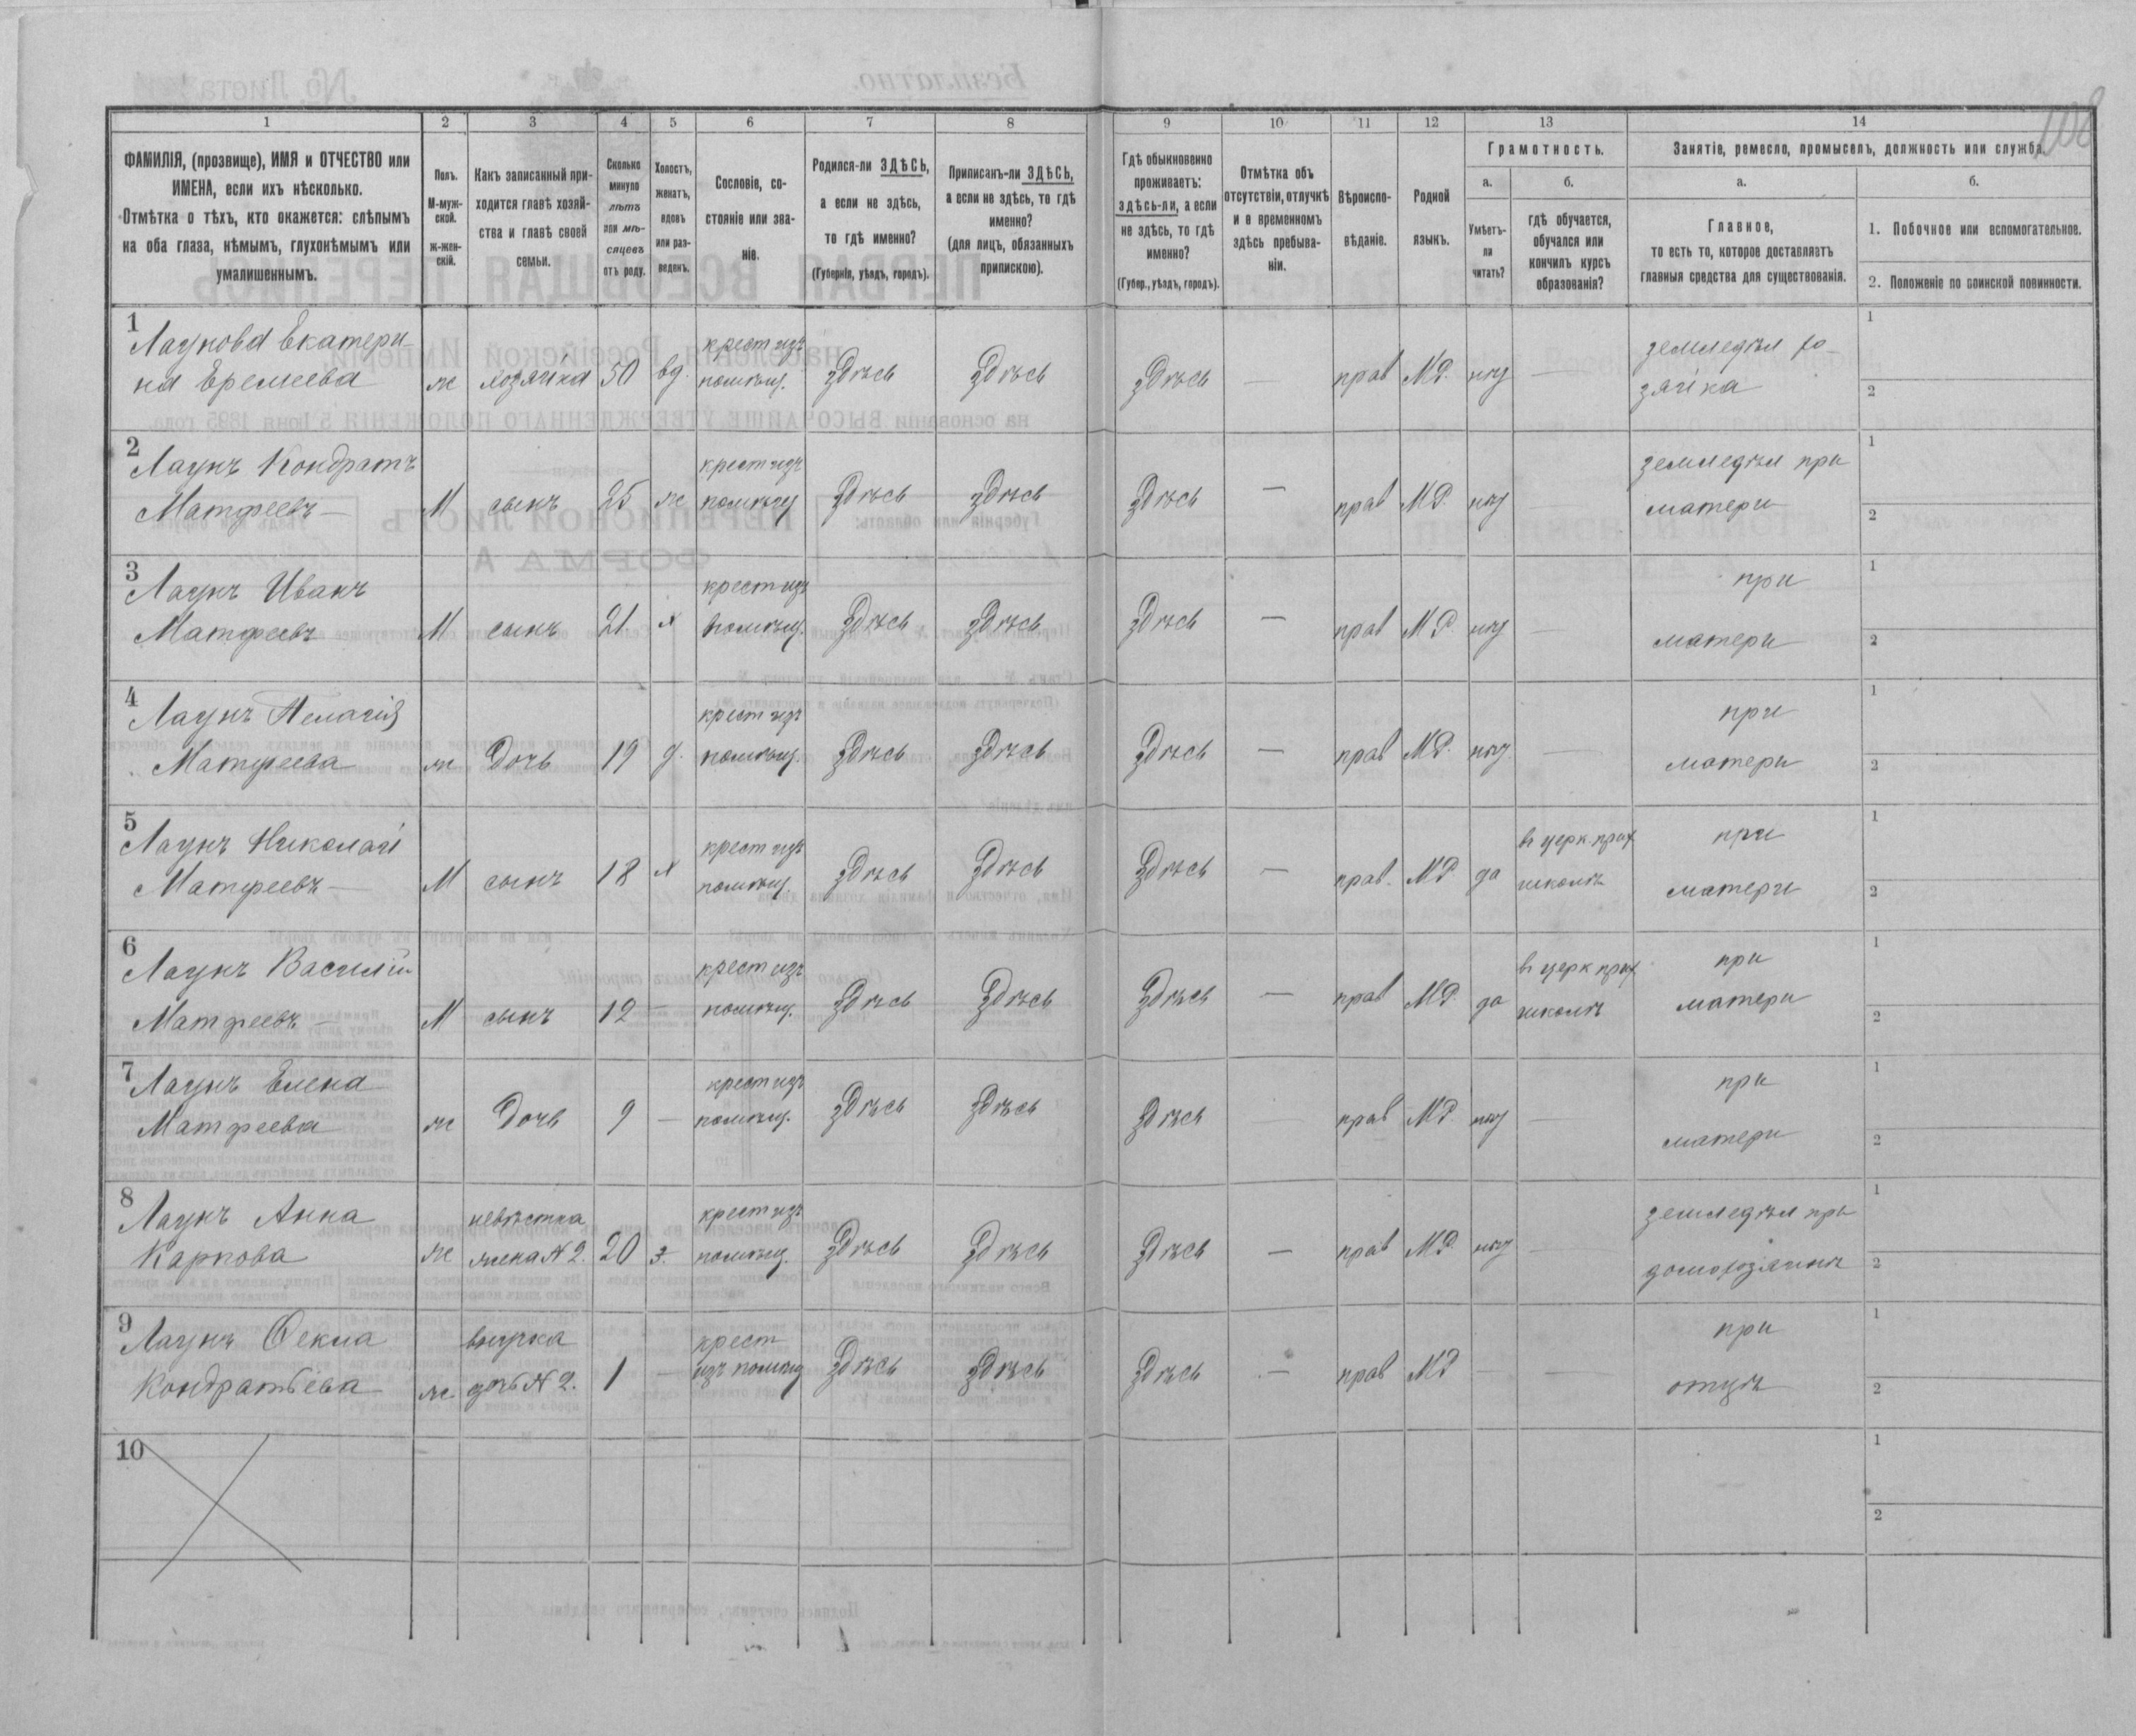 108
1 2 3 4 5 6 7 8 9 10 11 12 13 14
ФАМИЛІЯ, (прозвище), ИМЯ и ОТЧЕСТВО или
ИМЕНА, если ихъ нѣсколько.
Отмѣтка о тѣхъ, кто окажется: слѣпымъ
на оба глаза, нѣмымъ, глухонѣмымъ или
умалишеннымъ.
Полъ.
М-муж-
ской.
Ж-жен-
скій.
Какъ записанный при-
ходится главѣ хозяй-
ства и главѣ своей
семьи.
Сколько
минуло
лѣтъ
или мѣ-
сяцевъ
отъ роду.
Холостъ,
женатъ,
вдовъ
или раз-
веденъ.
Сословіе, со-
стояніе или зва-
ніе.
Родился-ли ЗДѢСЬ,
а если не здѣсь,
то гдѣ именно?
(Губернія, уѣздъ, городъ).
Приписанъ-ли ЗДѢСЬ,
а если не здѣсь, то гдѣ
именно?
(для лицъ, обязанныхъ
припискою).
Гдѣ обыкновенно
проживаетъ:
здѣсь-ли, а если
не здѣсь, то гдѣ
именно?
(Губер., уѣздъ, городъ).
Отмѣтка объ
отсутствіи, отлучкѣ
и о временномъ
здѣсь пребыва-
ніи.
Вѣроиспо-
вѣданіе.
Родной
языкъ.
Грамотность.
а.
Умѣетъ-
ли
читать?
б.
гдѣ обучается,
обучался или
кончилъ курсъ
образованія?
Занятіе, ремесло, промыселъ, должность или служба.
а.
Главное,
то есть то, которое доставляетъ
главныя средства для существованія.
б.
1. Побочное или вспомогательное.
2. Положеніе по воинской повинности.
1 Лаунова Екатери- крест изъ земледѣл хо- 1
на Еремеева ж хозяйка 50 вд. помѣщ. здѣсь здѣсь здѣсь — прав МР. нѣт — зяйка 2
2 Лаунъ Кондратъ крест изъ земледѣл при 1
Матфеевъ — М сынъ 25 ж помѣщ здѣсь здѣсь здѣсь — прав МР. нѣт матери 2
3 Лаунъ Иванъ крест изъ при 1
Матфеевъ М сынъ 21 х помѣщ. здѣсь здѣсь здѣсь — прав МР нѣт — матери 2
4 Лаунъ Пелагія крест изъ при 1
Матфеева ж дочь 19 д. помѣщ. здѣсь здѣсь здѣсь — прав МР. нѣт — матери 2
5 Лаунъ Николай крест изъ въ церк прих при 1
Матфеевъ — М сынъ 18 х помѣщ. здѣсь здѣсь здѣсь — прав. МР да школѣ матери 2
6 Лаунъ Василій крест изъ въ церк прих при 1
Матфеевъ — М сынъ 12 — помѣщ. здѣсь здѣсь здѣсь — прав МР. да школѣ матери 2
7 Лаунъ Елена крест изъ при 1
Матфеева ж дочь 9 — помѣщ. здѣсь здѣсь здѣсь прав МР. нѣт — матери 2
8 Лаунъ Анна невѣстка крест изъ земледѣл при 1
Карпова ж жена N 2. 20 з. помѣщ. здѣсь здѣсь здѣсь — прав МР. нѣт — домохозяинѣ 2
9 Лаунъ Ѳекла внучка крест при 1
Кондратьева ж дочь N 2. 1 — изъ помѣщ здѣсь здѣсь здѣсь — прав МР — — отцѣ 2
10 1
2